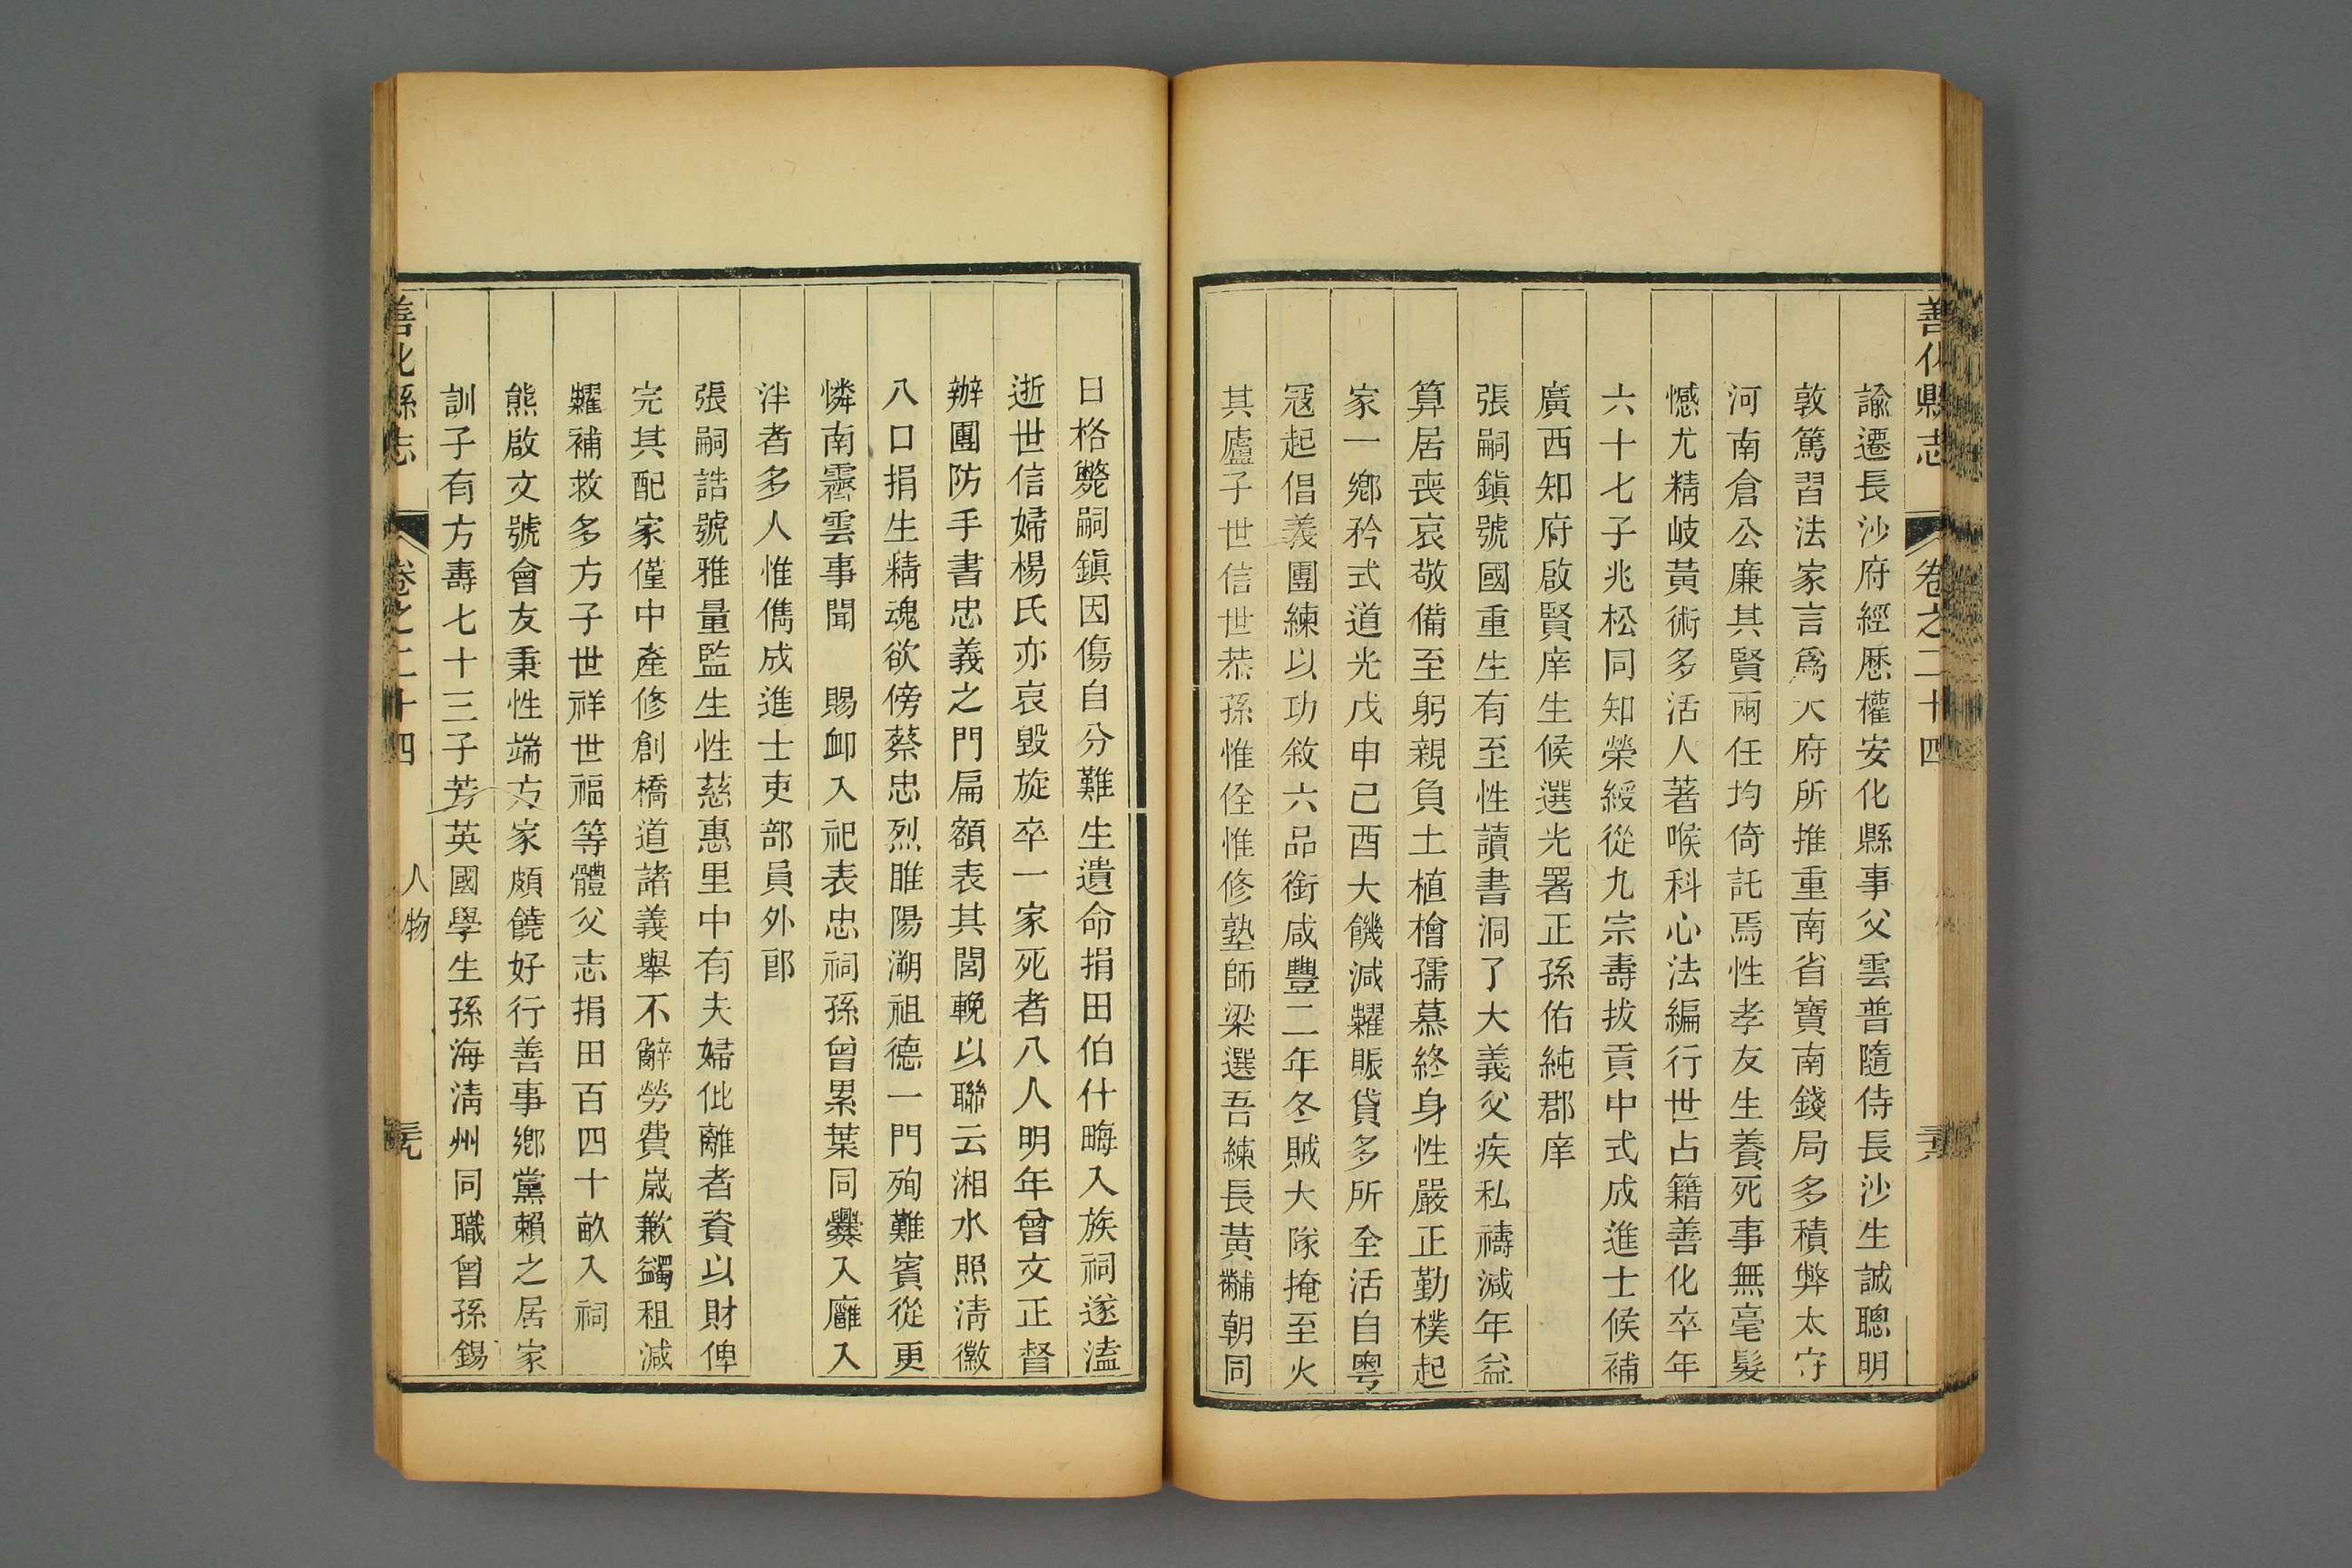 善化縣志 卷之二十四
諭遷長沙府經歷權安化縣事父雲普隨侍長沙生誠聰明
敦篤習法家言爲大府所推重南省寶南錢局多積弊太守
河南倉公廉其賢兩任均倚託焉性孝友生養死事無毫髮
憾尤精岐黃術多活人著喉科心法編行世占籍善化卒年
六十七子兆松同知榮綬從九宗壽拔貢中式成進士候補
廣西知府啟賢庠生候選光署正孫佑純郡庠
張嗣鎭號國重生有至性讀書洞了大義父疾私禱減年益
算居喪哀敬備至躬親負土植檜孺慕終身性嚴正勤樸起
家一鄉矜式道光戊申己酉大饑減糶賑貸多所全活自粵
冦起倡義團練以功敘六品銜咸豐二年冬賊大隊掩至火
其廬子世信世恭孫惟佺惟修塾師梁選吾練長黃黼朝同
日格斃嗣鎭因傷自分難生遺命捐田伯什畮入族祠遂溘
逝世信婦楊氏亦哀毀旋卒一家死者八人明年曾文正督
辦團防手書忠義之門扁額表其閭輓以聯云湘水照淸徽
八口捐生精魂欲傍蔡忠烈睢陽溯祖德一門殉難賓從更
憐南霽雲事聞 賜卹入祀表忠祠孫曾累葉同爨入廱入
泮者多人惟儁成進士吏部員外郎
張嗣誥號雅量監生性慈惠里中有夫婦仳離者資以財俾
完其配家僅中產修創橋道諸義舉不辭勞費歲歉蠲租減
糶補救多方子世祥世福等體父志捐田百四十畝入祠
熊啟文號會友秉性端方家頗饒好行善事鄉黨賴之居家
訓子有方壽七十三子芳英國學生孫海淸州同職曾孫錫
善化縣志 卷之二十四 人物